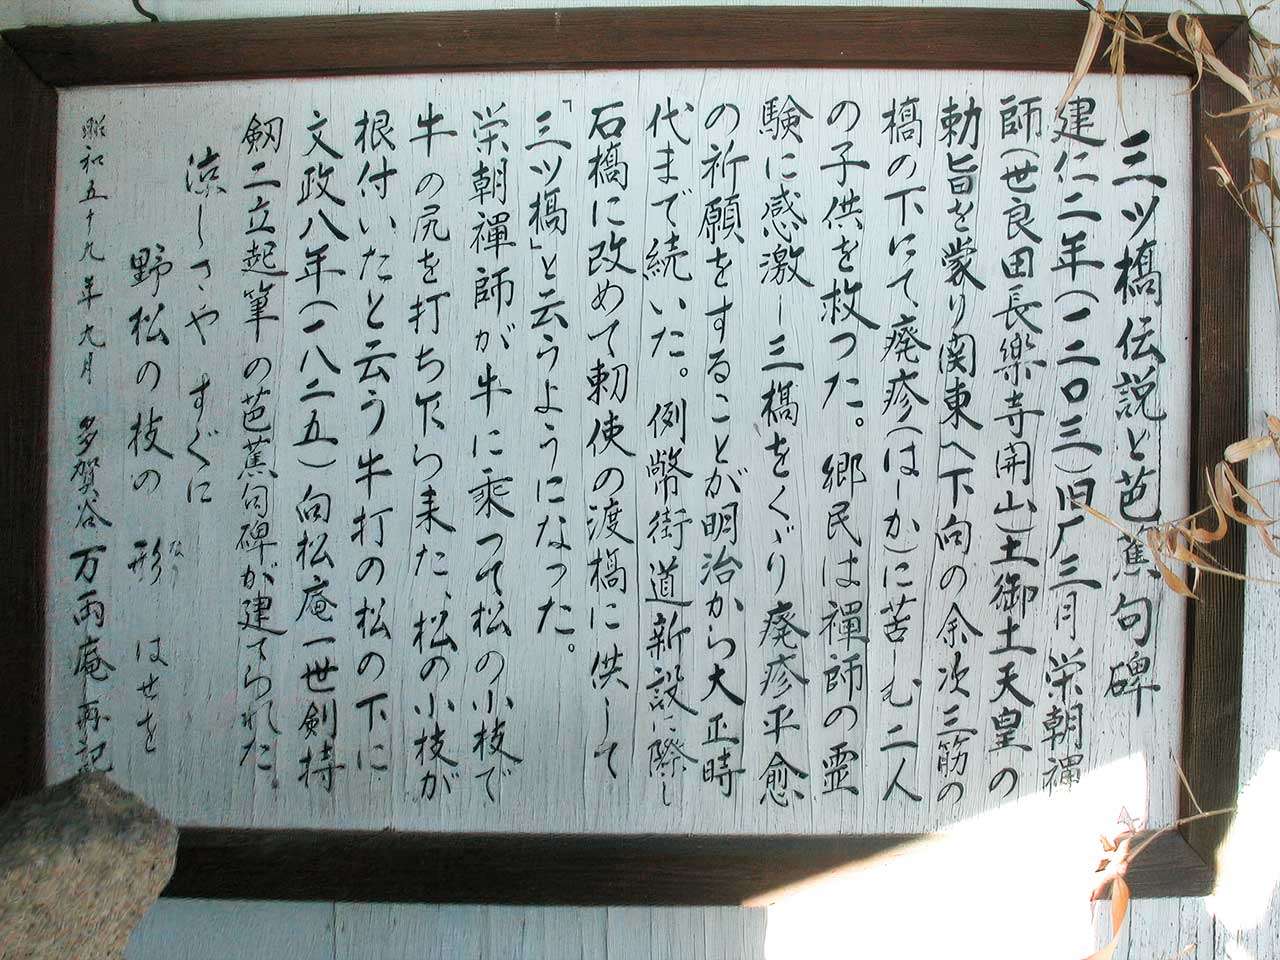 三ツ橋伝説と芭蕉句碑
建仁二年(一二〇三)旧厂三月 栄朝禪
師(世良田長楽寺開山)土御土天皇の
勅旨を蒙り関東へ下向の余次三筋の
橋の下にて痲疹(はしか)に苦しむ二人
の子供を救つた。郷民は禪師の霊
験に感激し三橋をくゞり痲疹平愈
の祈願をすることが明治から大正時
代まで続いた。例幣街道新設に際し
石橋に改めて勅使の渡橋に供して
「三ツ橋」と云うようになった。
栄朝禪師が牛に乗つて松の小枝で
牛の尻を打ち乍ら来た、松の小枝が
根付いたと云う牛打の松の下に
文政八年(一八二五)向松庵一世剣持
剱二立起筆の芭蕉句碑が建てられた
涼しさや すぐに
野松の枝の 形 はせを
なり
昭和五十九年九月 多賀谷万両庵再記